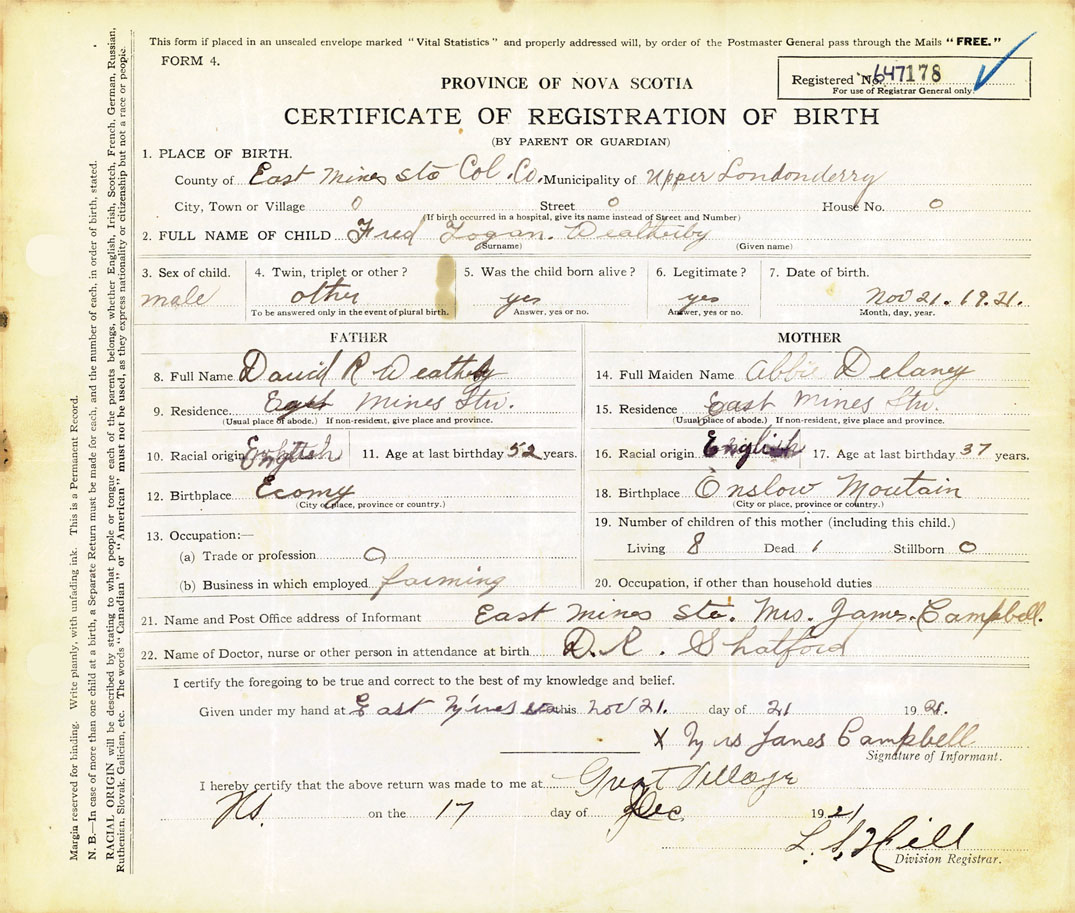 This form if placed in an unsealed envelope marked "Vital Statistics" and properly addressed will, by order of the Postmaster General pass through the Mails "FREE."
FORM 4.
Registered No. 647178
For use of Registrar General only.
PROVINCE OF NOVA SCOTIA
CERTIFICATE OF REGISTRATION OF BIRTH
(BY PARENT OR GUARDIAN)
1. PLACE OF BIRTH.
County of East Mines Sta Col. Co. Municipality of Upper Londonderry
City, Town or Village 0 Street 0 House No. 0
(If birth occurred in a hospital, give its name instead of Street and Number)
2. FULL NAME OF CHILD Fred Logan. Weatherby
(Surname) (Given name)
3. Sex of child. 4. Twin, triplet or other? 5. Was the child born alive? 6. Legitimate? 7. Date of birth.
male other yes yes Nov 21. 1921.
To be answered only in the event of plural birth. Answer, yes or no. Answer, yes or no. Month, day, year.
FATHER
8. Full Name David R Weatherby
9. Residence East Mines Stn.
(Usual place of abode.) If non-resident, give place and province.
10. Racial origin English 11. Age at last birthday 52 years.
12. Birthplace Ecomy
(City or place, province or country.)
13. Occupation:—
(a) Trade or profession 0
(b) Business in which employed farming
MOTHER
14. Full Maiden Name Abbie Delaney
15. Residence East Mines Stn.
(Usual place of abode.) If non-resident, give place and province.
16. Racial origin English 17. Age at last birthday 37 years.
18. Birthplace Onslow Moutain
(City or place, province or country.)
19. Number of children of this mother (including this child.)
Living 8 Dead 1 Stillborn 0
20. Occupation, if other than household duties
21. Name and Post Office address of Informant East Mines Sta. Mrs. James. Campbell.
22. Name of Doctor, nurse or other person in attendance at birth D.R. Shatford
I certify the foregoing to be true and correct to the best of my knowledge and belief.
Given under my hand at East Mines sta this Nov 21. day of 21 1921.
X Mrs James Campbell
Signature of Informant.
I hereby certify that the above return was made to me at Great Village
NS. on the 17 day of Dec 1921
L. S. Hill
Division Registrar.
Margin reserved for binding. Write plainly, with unfading ink. This is a Permanent Record.
N. B.—In case of more than one child at a birth, a Separate Return must be made for each, and the number of each, in order of birth, stated.
RACIAL ORIGIN will be described by stating to what people or tongue each of the parents belongs, whether English, Irish, Scotch, French, German, Russian,
Ruthenian, Slovak, Galician, etc. The words "Canadian" or "American" must not be used, as they express nationality or citizenship but not a race or people.